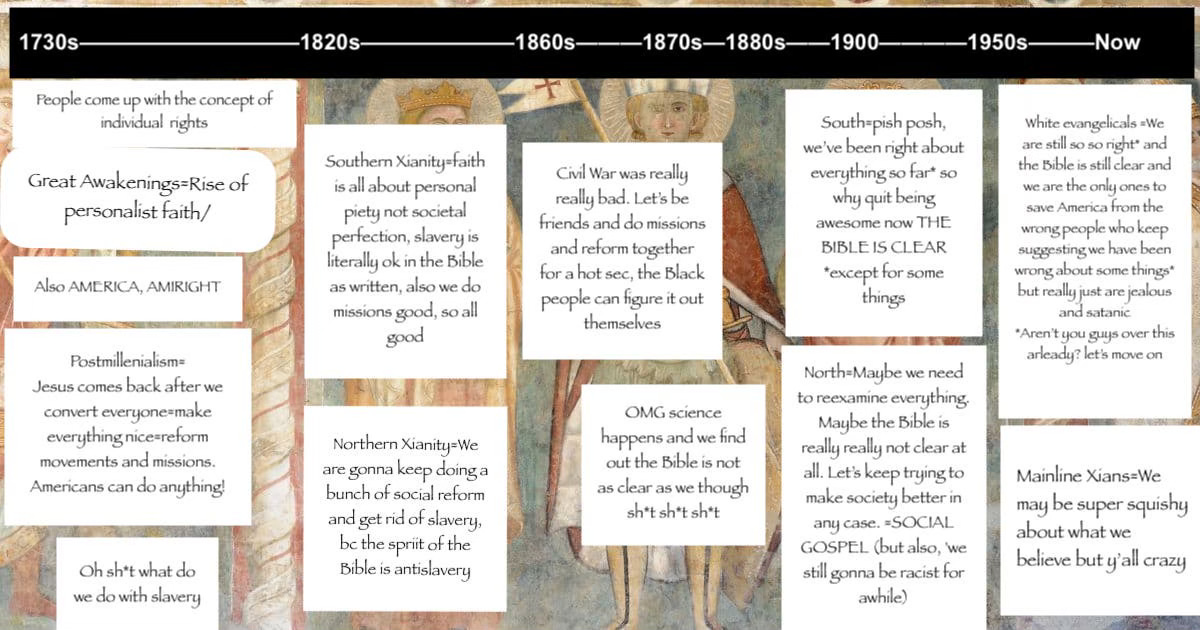 1730s————————1820s————————1860s————1870s—1880s——1900————1950s———Now
People come up with the concept of
individual rights
Great Awakenings=Rise of
personalist faith/
Also AMERICA, AMIRIGHT
Postmillenialism=
Jesus comes back after we
convert everyone=make
everything nice=reform
movements and missions.
Americans can do anything!
Oh sh*t what do
we do with slavery
Southern Xianity=faith
is all about personal
piety not societal
perfection, slavery is
literally ok in the Bible
as written, also we do
missions good, so all
good
Northern Xianity=We
are gonna keep doing a
bunch of social reform
and get rid of slavery,
bc the spriit of the
Bible is antislavery
Civil War was really
really bad. Let's be
friends and do missions
and reform together
for a hot sec, the Black
people can figure it out
themselves
OMG science
happens and we find
out the Bible is not
as clear as we though
sh*t sh*t sh*t
South=pish posh,
we've been right about
everything so far* so
why quit being
awesome now THE
BIBLE IS CLEAR
*except for some
things
North=Maybe we need
to reexamine everything.
Maybe the Bible is
really really not clear at
all. Let's keep trying to
make society better in
any case. =SOCIAL
GOSPEL (but also, 'we
still gonna be racist for
awhile)
White evangelicals =We
are still so so right* and
the Bible is still clear and
we are the only ones to
save America from the
wrong people who keep
suggesting we have been
wrong about some things*
but really just are jealous
and satanic
*Aren't you guys over this
arleady? let's move on
Mainline Xians=We
may be super squishy
about what we
believe but y'all crazy